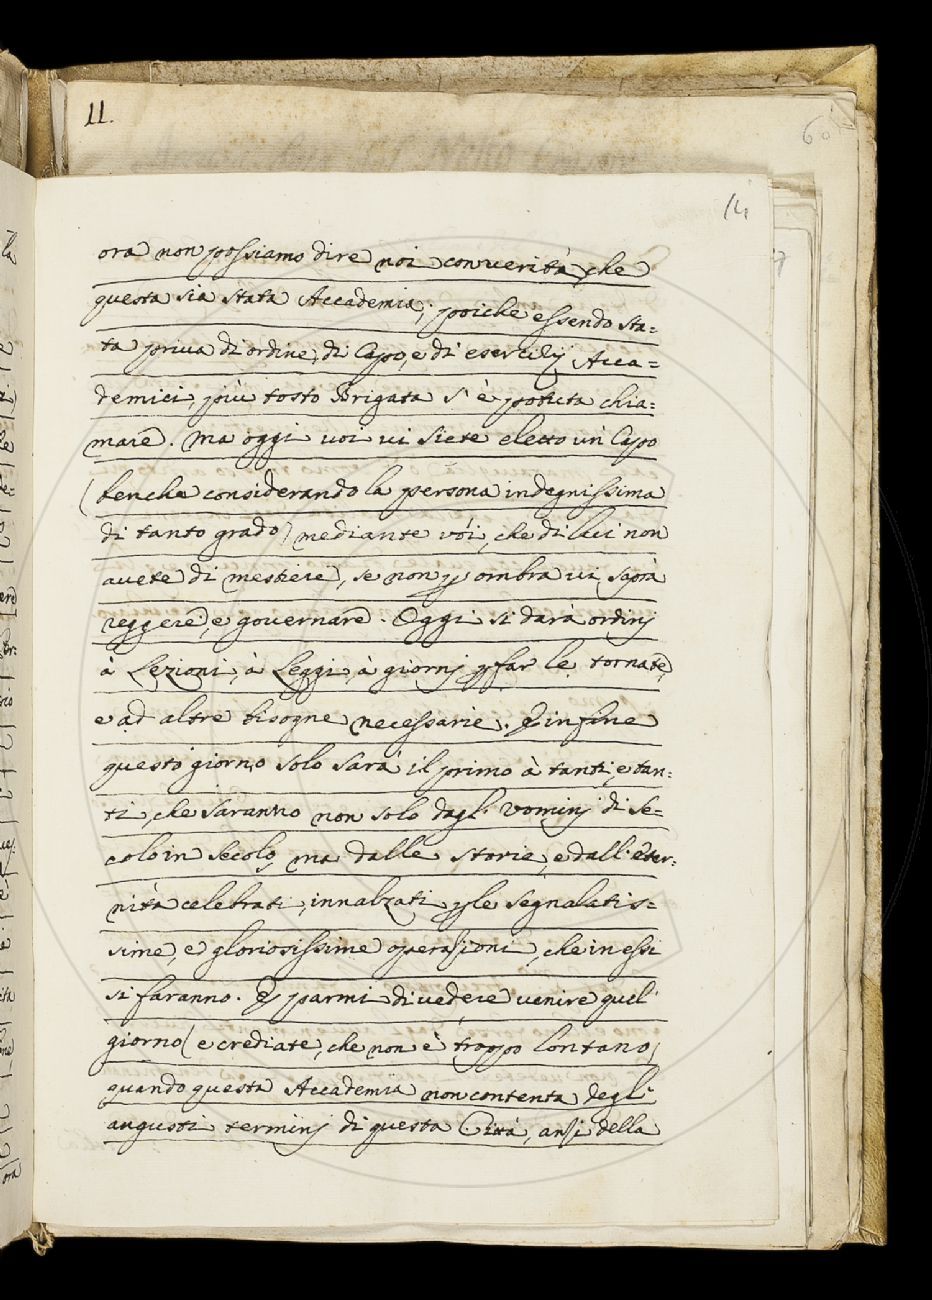 11.
60
14
7
ora non possiamo dire noi con verità, che
questa sia stata Accademia; poiche essendo sta=
ta priva di ordine, di Capo, e di esercizij Acca=
demici, più tosto Brigata s'è potuta chia=
mare. Ma oggi voi vi siete eletto un Capo
(benche considerando la persona indegnissima
di tanto grado) mediante vói, che di luci non
avete di mestiere, se non p ombra vi saprà
reggere, e governare. Oggi si darà ordinj
à Lezioni, à Leggi, à giornj p far le tornate,
e ad altre bisogne necessarie. E in fine
questo giorno solo sarà il primo à tanti, e tan=
ti, che saranno non solo dagl' Vominj di se=
colo in secolo, ma dalle storie, e dall'eter=
nità celebrati, innalzati p le segnalatis=
sime, e gloriosissime operazioni, che in essi
si faranno. E parmi di vedere venire quel
giorno (e crediate, che non è troppo lontano)
quando questa Accademia non contenta degli
angusti terminj di questa Città, anzi della